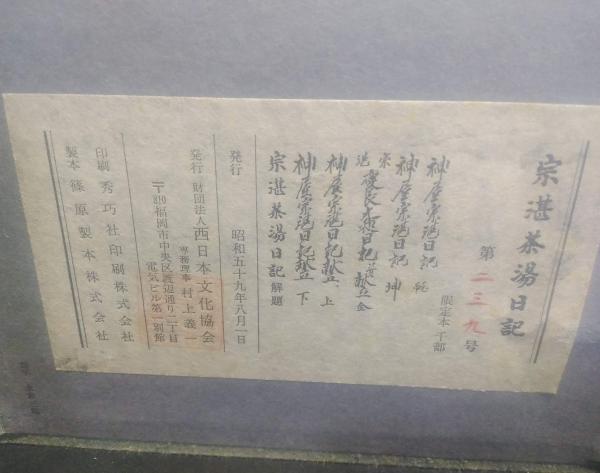 宗湛茶湯日記
第二三九号
限定本 千部
神屋宗湛日記 乾
神屋宗湛日記 坤
宗湛
神屋宗湛日記 献立 上
神屋宗湛日記 献立 下
宗湛茶湯日記 解題
発行 昭和五十九年八月一日
発行 財団法人 西日本文化協会
専務理事 村上義一
〒810 福岡市中央区渡辺通り二丁目
電気ビル第一別館
印刷 秀巧社印刷株式会社
製本 篠原製本株式会社